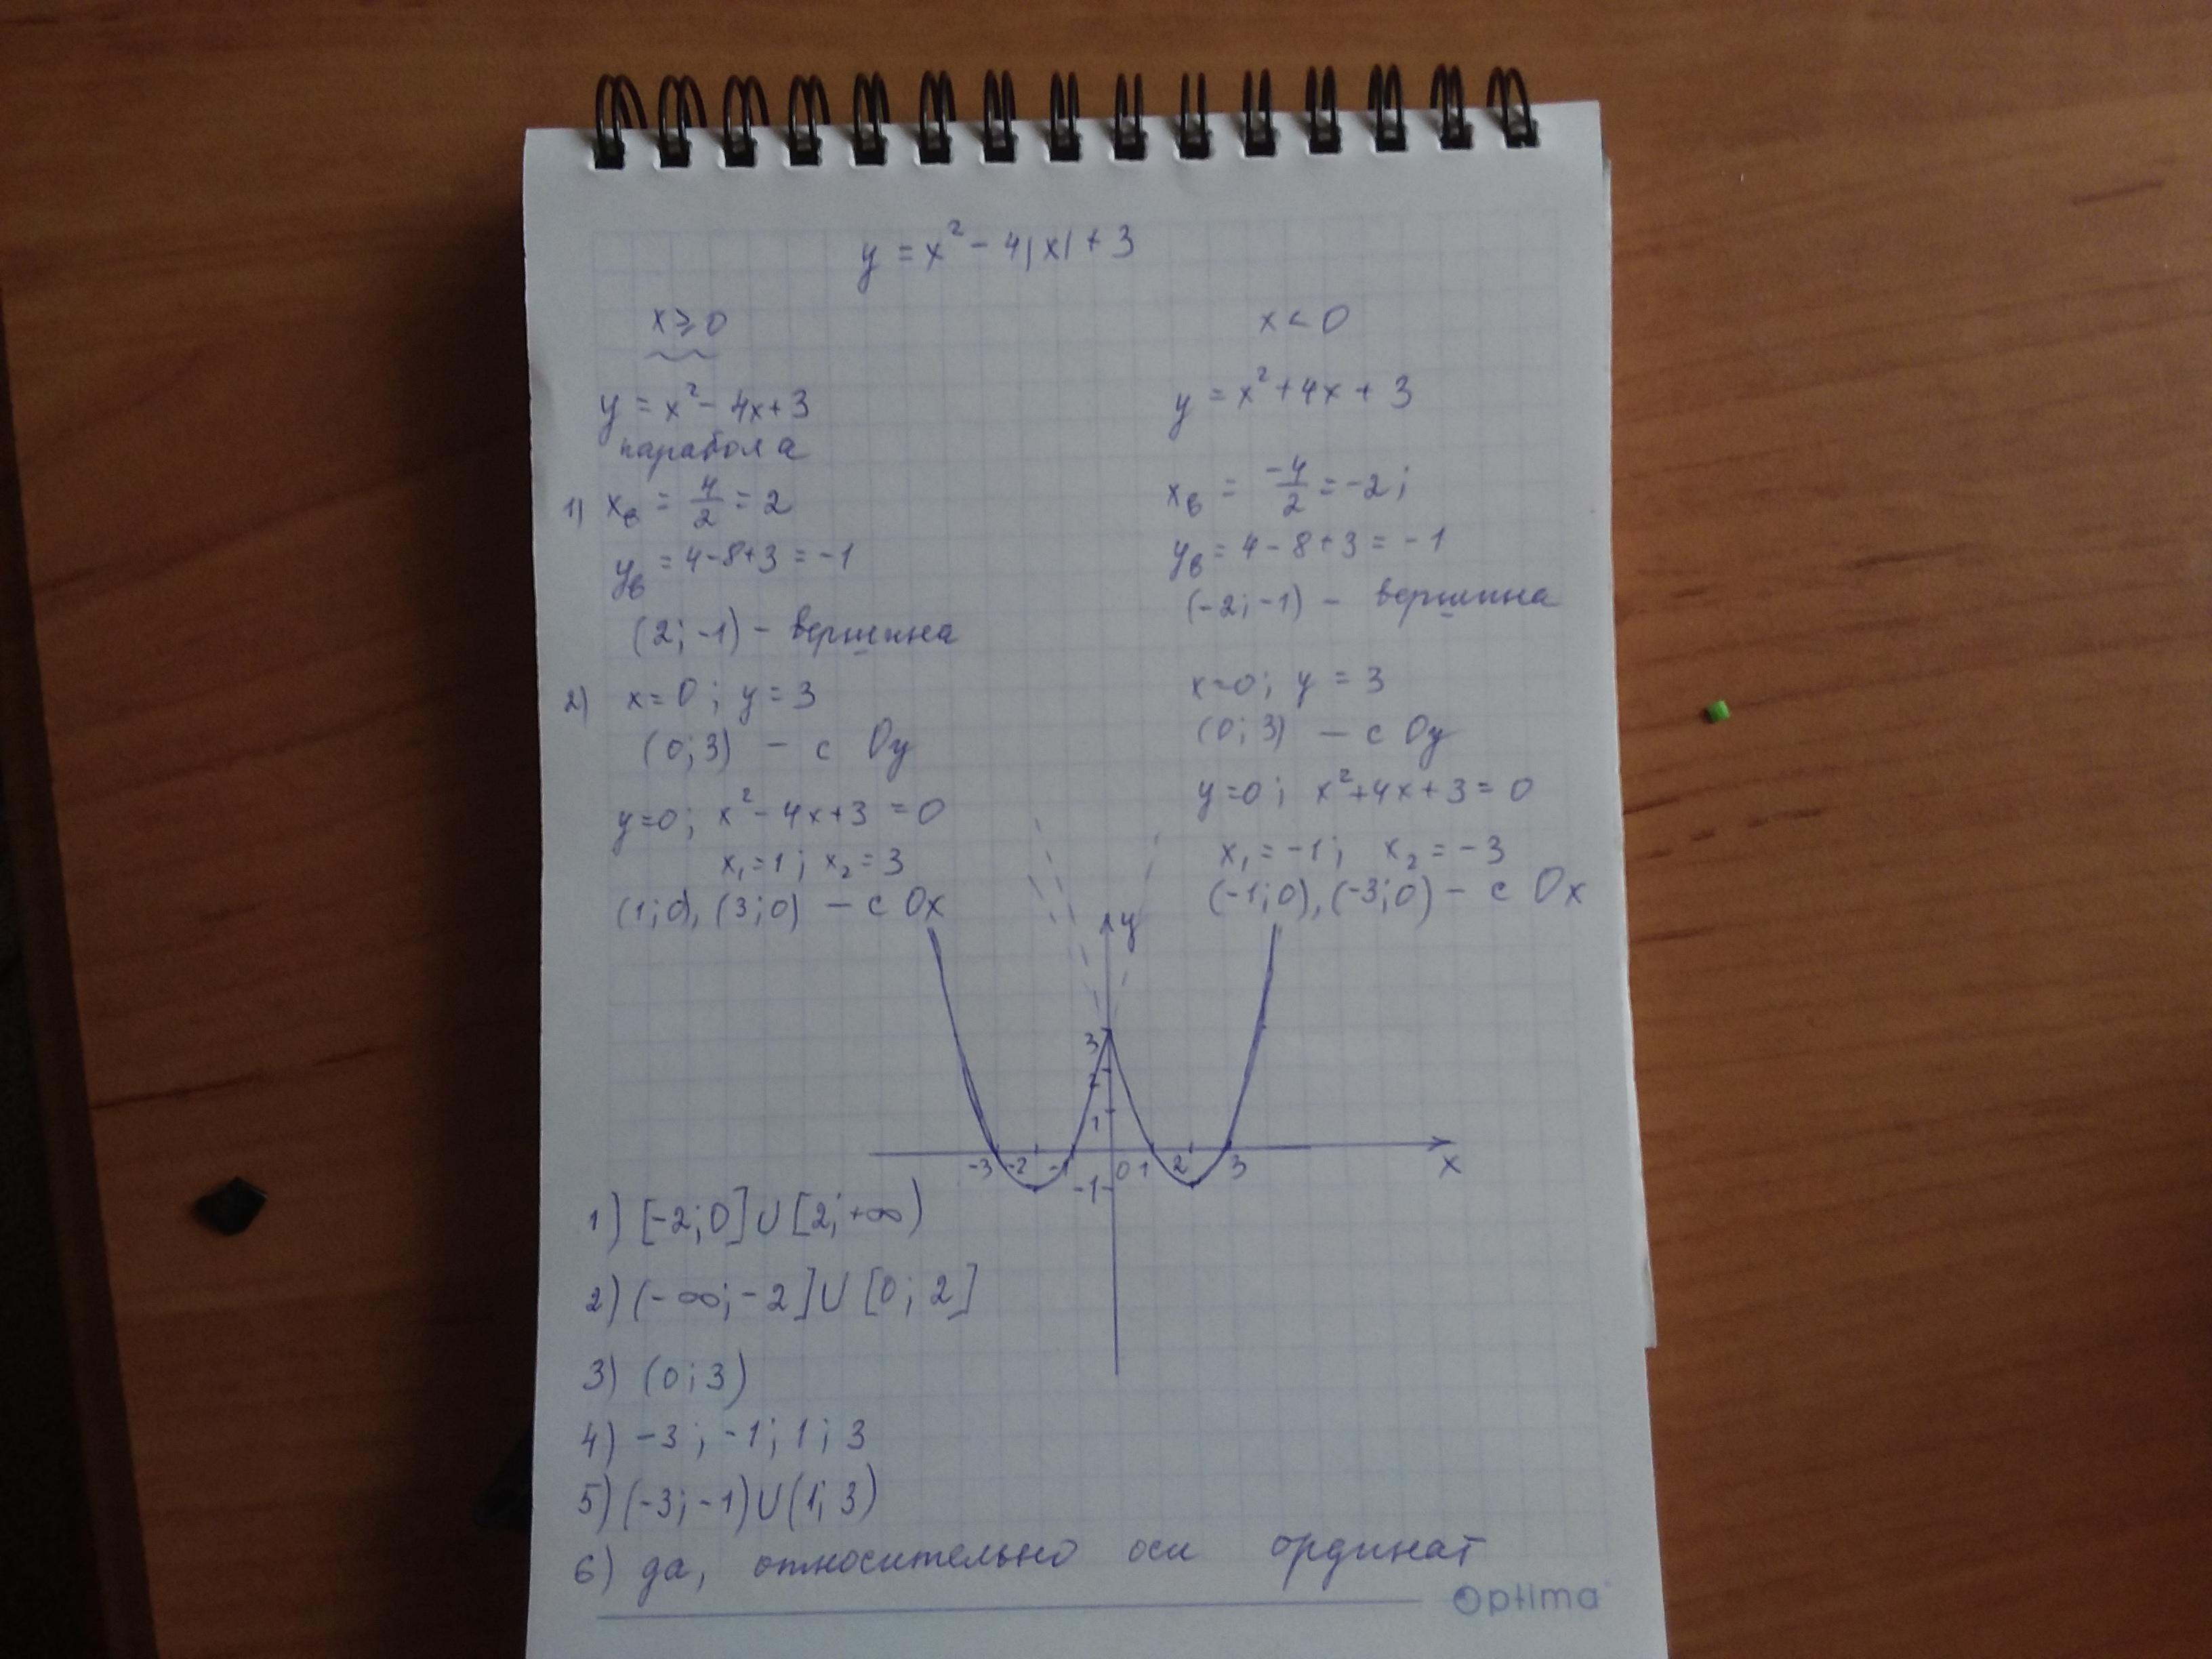 y = x² - 4|x| + 3
x ≥ 0
y = x² - 4x + 3
парабола
1) xв = 4/2 = 2
yв = 4 - 8 + 3 = -1
(2; -1) - вершина
2) x = 0; y = 3
(0; 3) - с Oy
y=0; x² - 4x + 3 = 0
x₁ = 1; x₂ = 3
(1; 0), (3; 0) - с Ox
x < 0
y = x² + 4x + 3
xв = -4/2 = -2;
yв = 4 - 8 + 3 = -1
(-2; -1) - вершина
x=0; y = 3
(0; 3) - с Oy
y=0; x² + 4x + 3 = 0
x₁ = -1; x₂ = -3
(-1; 0), (-3; 0) - с Ox
y
3
2
1
-3 -2 -1 0 1 2 3 x
-1
1) [-2; 0] ∪ [2; +∞)
2) (-∞; -2] ∪ [0; 2]
3) (0; 3)
4) -3; -1; 1; 3
5) (-3; -1) ∪ (1; 3)
6) да, относительно оси ординат
Optima